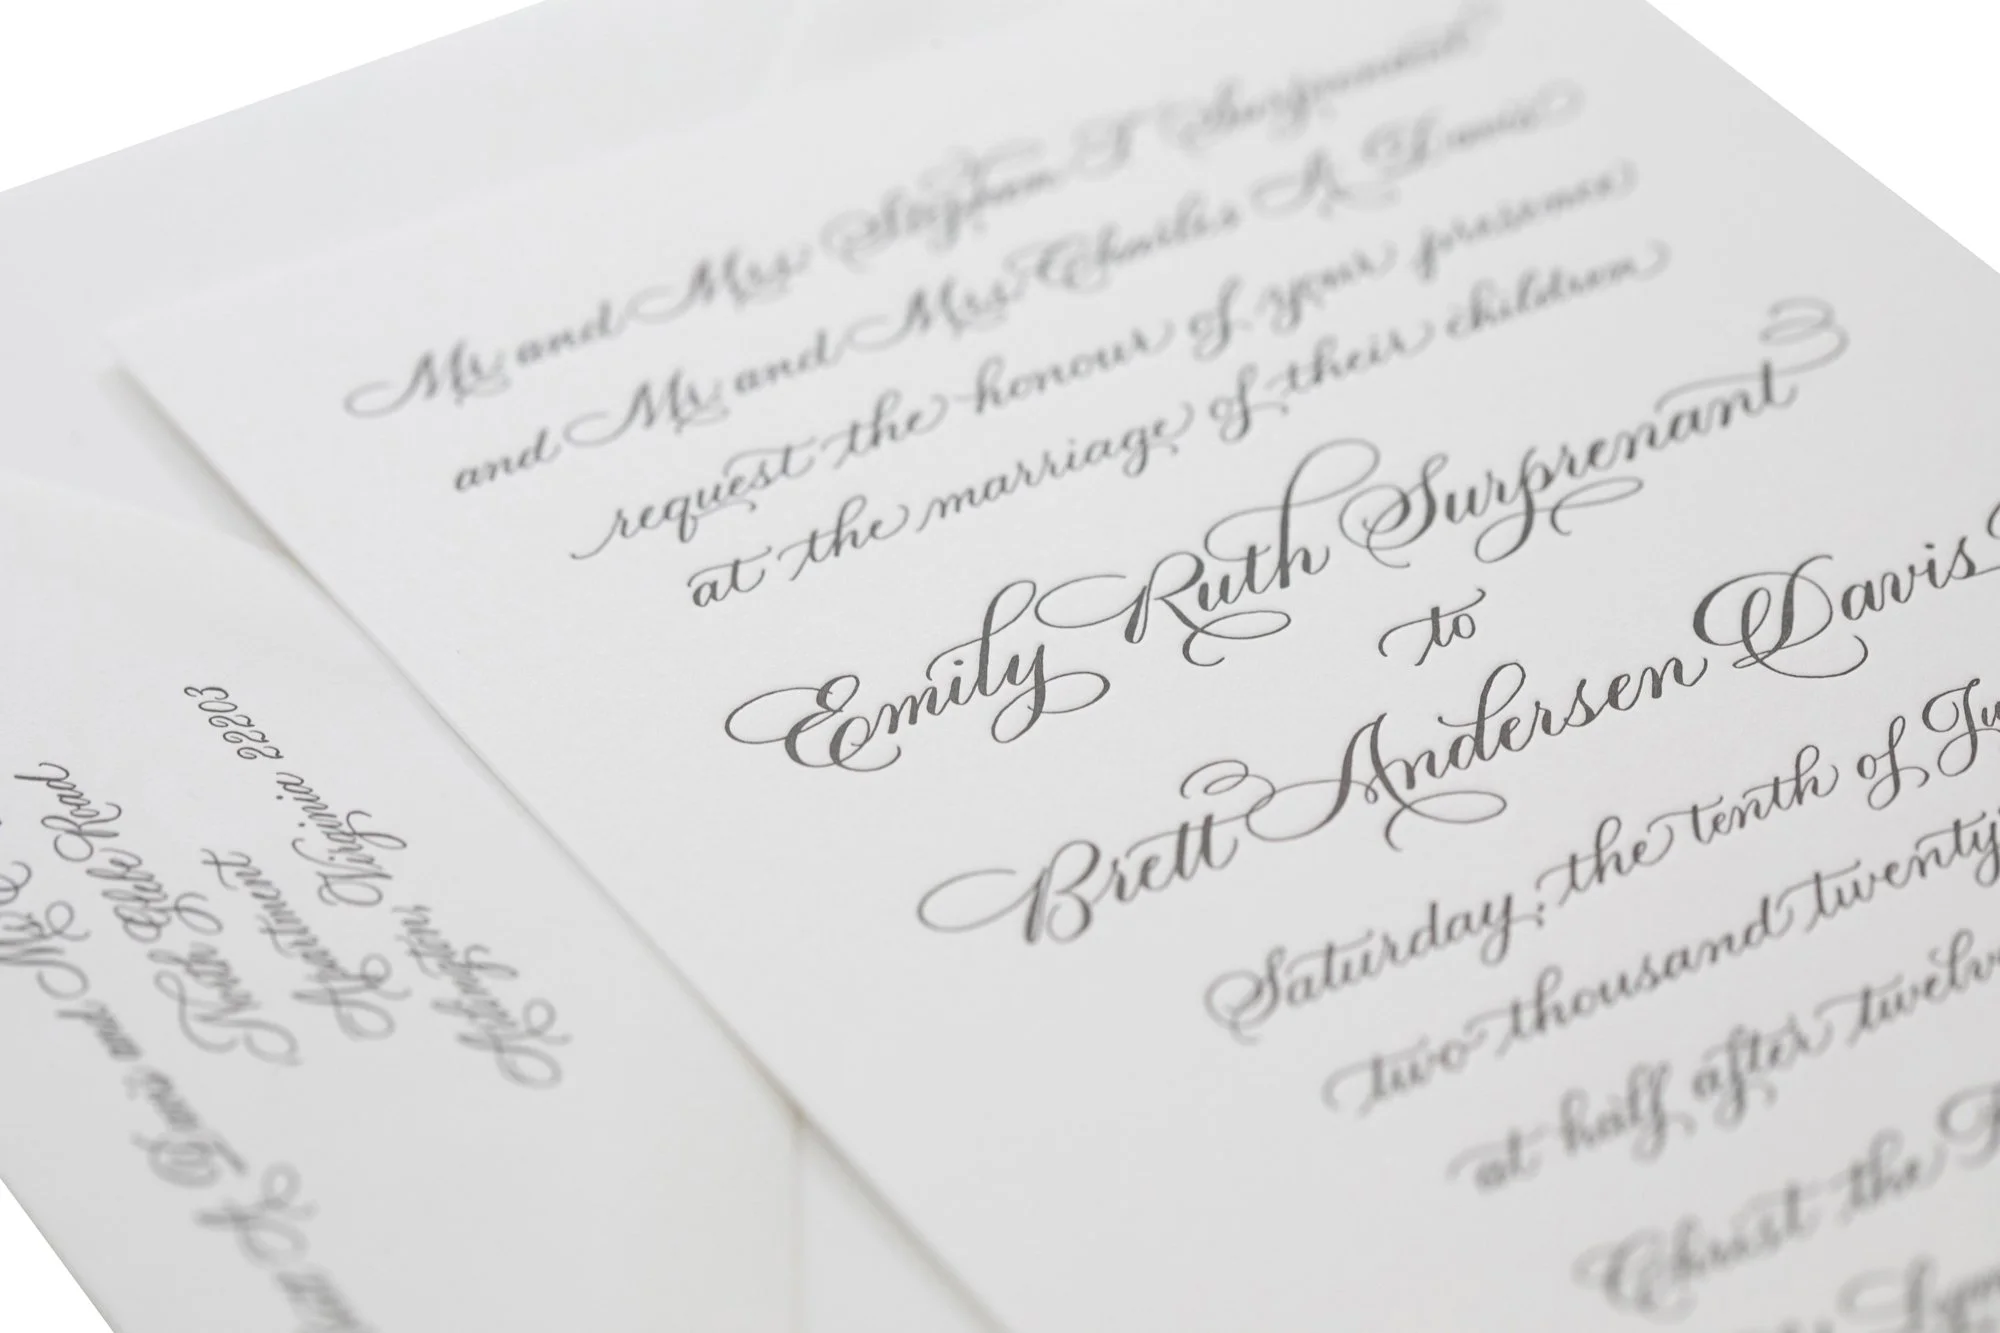 Mr. and Mrs. Stephan T. Surprenant
and Mr. and Mrs. Charles A. Davis
request the honour of your presence
at the marriage of their children
Emily Ruth Surprenant
to
Brett Andersen Davis
Saturday, the tenth of
two thousand twenty
at half after twelve
Christ the
and Mrs.
Davis
North Glebe Road
Apartment
Arlington, Virginia 22203